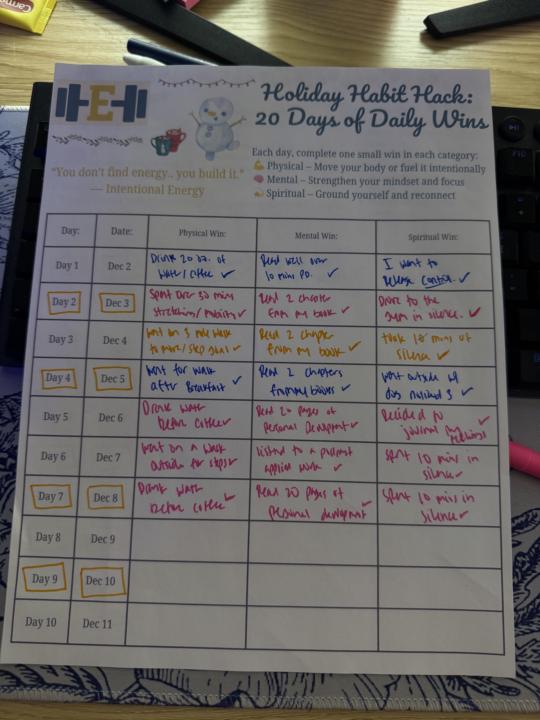 Carm
E
Holiday Habit Hack:
20 Days of Daily Wins
"You don't find energy.. you build it."
— Intentional Energy
Each day, complete one small win in each category:
💪 Physical – Move your body or fuel it intentionally
🧠 Mental – Strengthen your mindset and focus
💫 Spiritual – Ground yourself and reconnect
Day: Date: Physical Win: Mental Win: Spiritual Win:
Day 1 Dec 2
Drink 20 oz. of
water/coffee ✓
Read well over
10 mins PD. ✓
I want to
release control. ✓
Day 2 Dec 3
Spent over 30 mins
stretching/mobility ✓
Read 2 chapter
from my book ✓
Drove to the
gym in silence. ✓
Day 3 Dec 4
went on 3 mile walk
to more/step goal ✓
Read 2 chapter
from my book ✓
took 10 mins of
silence ✓
Day 4 Dec 5
went for walk
after Breakfast ✓
Read 2 chapters
from my books ✓
went outside w/
dogs ✓
Day 5 Dec 6
Drink water
before coffee ✓
Read 20 pages of
personal development ✓
Decided to
journal my
feelings ✓
Day 6 Dec 7
went on a walk
outside for steps ✓
listed to a podcast
applied work ✓
spent 10 mins in
silence ✓
Day 7 Dec 8
Drink water
before coffee ✓
Read 20 pages of
personal development ✓
spent 10 mins in
silence ✓
Day 8 Dec 9
Day 9 Dec 10
Day 10 Dec 11